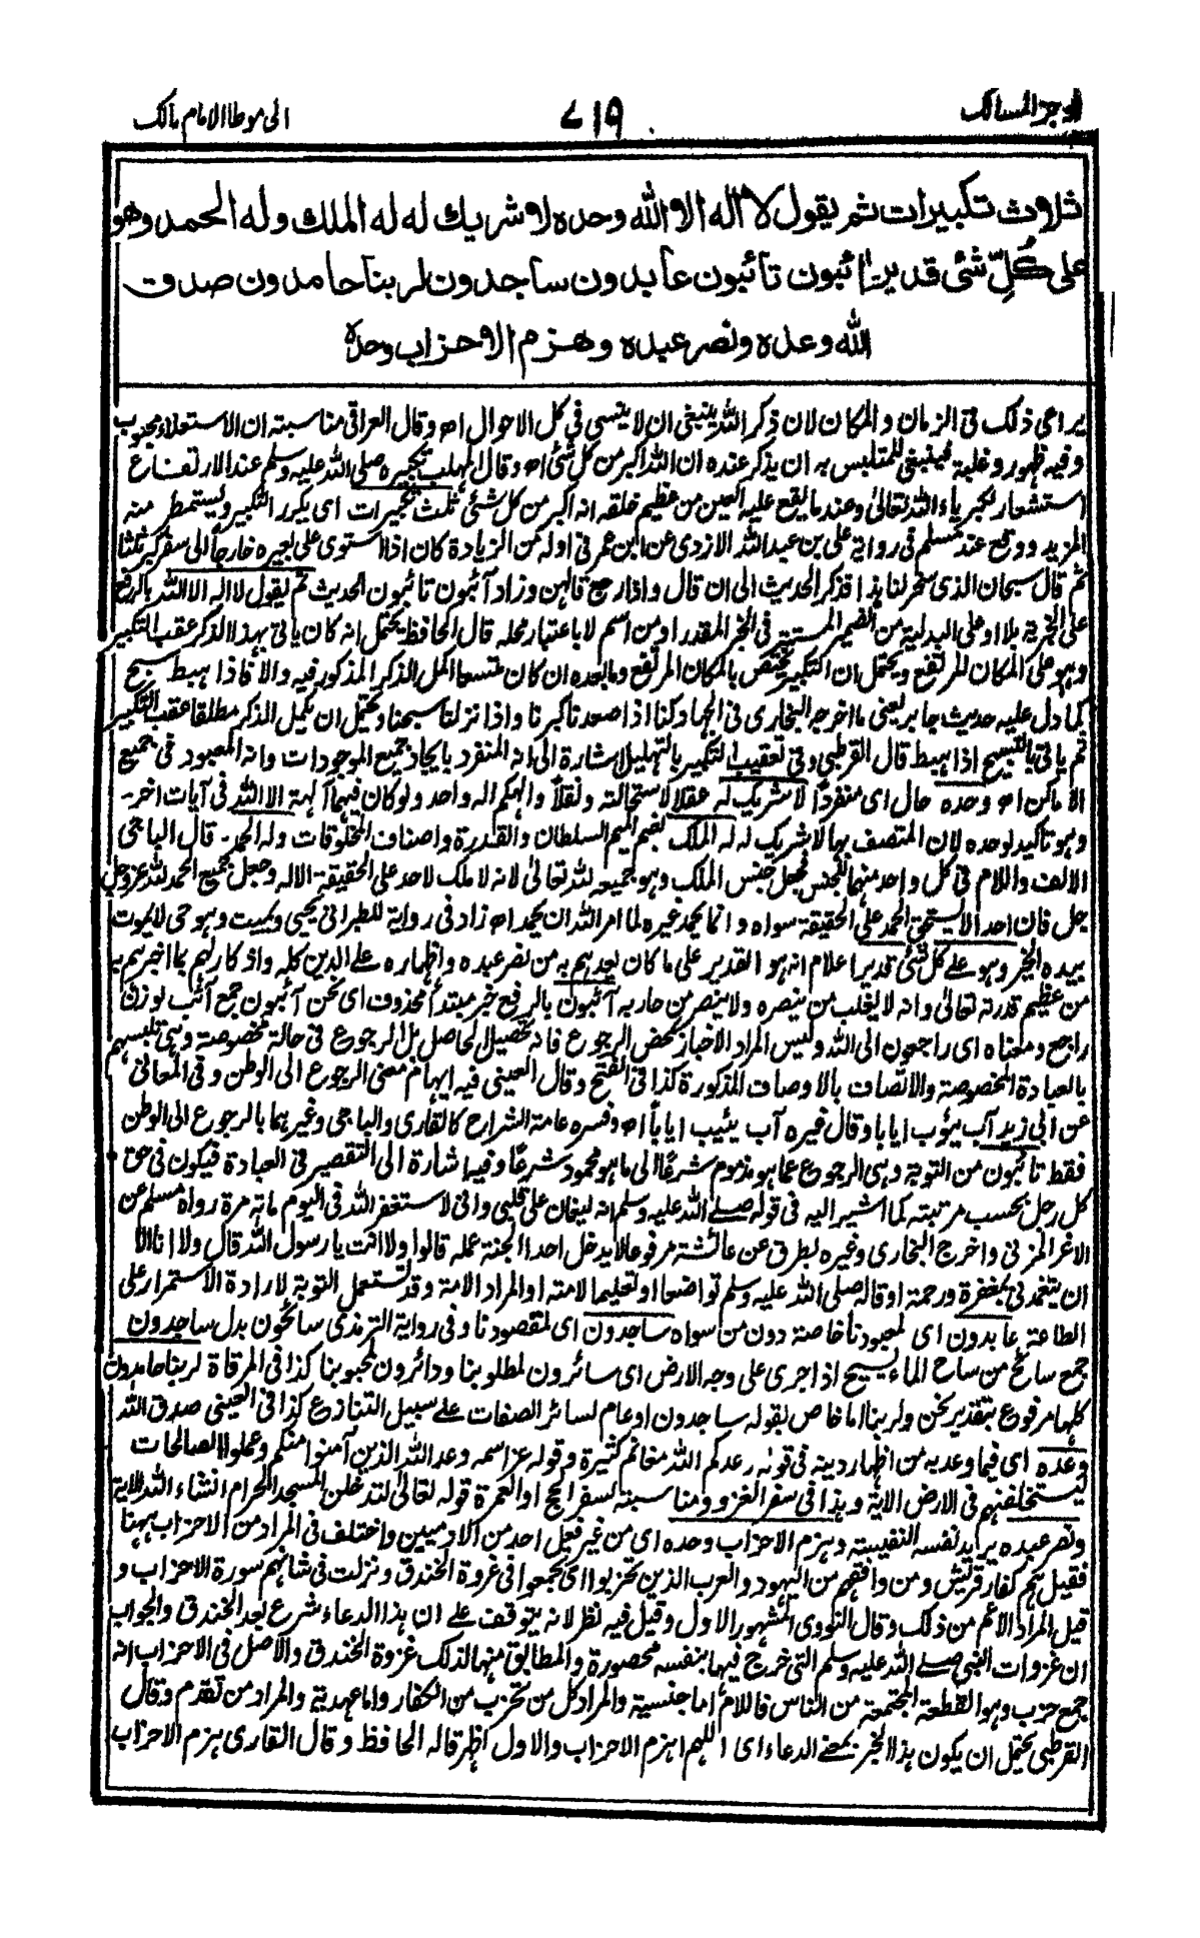 اوجز المسالك ٧١٩ الى موطا الامام مالك
ثلاث تكبيرات ثم يقول لا اله الا الله وحده لا شريك له له الملك وله الحمد وهو
على كُلِّ شئ قدير اٰئبون تائبون عابدون ساجدون لربنا حامدون صدق
الله وعده ونصر عبده وهزم الاحزاب وحده
يراعى ذلك فى الزمان والمكان لان ذكر الله ينبغى ان لا ينسى فى كل الاحوال اھ وقال العراقى مناسبته ان الاستعلاء محبوب
وفيه ظهور وغلبة فينبغى للمتلبس به ان يذكر عنده ان الله اكبر من كل شئ اھ وقال المهلب تكبيره صلى الله عليه وسلم عند الارتفاع
استشعار لكبرياء الله تعالىٰ وعند ما يقع عليه العين من عظيم خلقه انه اكبر من كل شئ ثلث تكبيرات اى يكرر التكبير ويستمطر منه
المزيد ووقع عند مسلم فى رواية على بن عبد الله الازدى عن ابن عمر فى اوله من الزيادة كان اذا استوى على بعيره خارجاً الى سفر كبر ثلثا
ثم قال سبحان الذى سخر لنا هذا فذكر الحديث الى ان قال واذا رجع قالهن وزاد آئبون تائبون الحديث ثم يقول لا اله الا الله بالرفع
على الخبرية بلا او على البدلية من الضمير المستتر فى الخبر المقدر او من اسم لا باعتبار محله قال الحافظ يحتمل انه كان ياتى بهذا الذكر عقب التكبير
وهو على المكان المرتفع ويحتمل ان التكبير يختص بالمكان المرتفع وما بعده ان كان متسعا اكمل الذكر المذكور فيه والا فاذا هبط سبح
كما دل عليه حديث جابر يعنى ما اخرجه البخارى فى الجهاد كنا اذا صعدنا كبرنا واذا نزلنا سبحنا ويحتمل ان يكمل الذكر مطلقا عقب التكبير
ثم ياتى بالتسبيح اذا هبط قال القرطبى وفى تعقيب التكبير بالتهليل اشارة الى انه المنفرد بايجاد جميع الموجودات وانه المعبود فى جميع
الاماكن اھ وحده حال اى منفرداً لا شريك له عقلا لاستحالته ونقلاً والهكم اله واحد ولو كان فيهما آلهة الا الله فى آيات اخر ـ
وهو تاكيد لوحده لان المتصف بها لا شريك له له الملك بضم الميم السلطان والقدرة واصناف المخلوقات وله الحمد ـ قال الباجى
الالف واللام فى كل واحد منهما للجنس فجعل جنس الملك وهو جميعه لله تعالىٰ لانه لا ملك لاحد على الحقيقة الا له وجعل جميع الحمد لله عز وجل
جل فان احدا لا يستحق الحمد على الحقيقة سواه وانما يحمد غيره لما امر الله ان يحمد اھ زاد فى رواية للطبرانى يحيى ويميت وهو حى لا يموت
بيده الخير وهو على كل شئ قدير اعلام انه هو القدير على ما كان يعدهم به من نصر عبده واظهاره على الدين كله واذ كار لهم بما اخبرهم به
من عظيم قدرته تعالىٰ وانه لا يغلب من ينصره ولا ينصر من حاربه آئبون بالرفع خبر مبتدأ محذوف اى نحن آئبون جمع آئب بوزن
راجع ومعناه اى راجعون الى الله وليس المراد الاخبار بمحض الرجوع فانه تحصيل الحاصل بل الرجوع فى حالة مخصوصة وهى تلبسهم
بالعبادة المخصوصة والاتصاف بالاوصاف المذكورة كذا فى الفتح وقال العينى فيه ايهام معنى الرجوع الى الوطن وفى المعانى
عن ابى زيد آب يئوب ايابا وقال غيره آب يئيب اياباً اھ وفسره عامة الشراح كالقارى والباجى وغيرهما بالرجوع الى الوطن
فقط تائبون من التوبة وهى الرجوع عما هو مذموم شرعًا الى ما هو محمود شرعًا وفيه اشارة الى التقصير فى العبادة فيكون فى حق
كل رجل بحسب مرتبته كما اشير اليه فى قوله صلى الله عليه وسلم انه ليغان على قلبى وانى لاستغفر الله فى اليوم مائة مرة رواه مسلم عن
الاغر المزنى واخرج البخارى وغيره بطرق عن عائشة مرفوعا لا يدخل احدا الجنة عمله قالوا ولا انت يا رسول الله قال ولا انا الا
ان يتغمدنى بمغفرة ورحمة او قاله صلى الله عليه وسلم تواضعا او تعليما لامته او المراد الامة وقد تستعمل التوبة لارادة الاستمرار على
الطاعة عابدون اى لمعبودنا خاصة دون من سواه ساجدون اى لمقصودنا وفى رواية الترمذى سائحون بدل ساجدون
جمع سائح من ساح الماء يسيح اذا جرى على وجه الارض اى سائرون لمطلوبنا ودائرون لمحبوبنا كذا فى المرقاة لربنا حامدون
كلها مرفوع بتقدير نحن ولربنا اما خاص بقوله ساجدون او عام لسائر الصفات على سبيل التنازع كذا فى العينى صدق الله
وعده اى فيما وعد به من اظهار دينه فى قوله وعدكم الله مغانم كثيرة وقوله عز اسمه وعد الله الذين آمنوا منكم وعملوا الصالحات
ليستخلفنهم فى الارض الاية وهذا فى سفر الغزو ومناسبته لسفر الحج او العمرة قوله تعالىٰ لتدخلن المسجد الحرام انشاء الله الاية
ونصر عبده يريد نفسه النفيسة وهزم الاحزاب وحده اى من غير فعل احد من الآدميين واختلف فى المراد من الاحزاب ههنا
فقيل هم كفار قريش ومن وافقهم من اليهود والعرب الذين تحزبوا اى تجمعوا فى غزوة الخندق ونزلت فى شانهم سورة الاحزاب و
قيل المراد الاعم من ذلك وقال النووى المشهور الاول وقيل فيه نظر لانه يتوقف على ان هذا الدعاء شرع بعد الخندق والجواب
ان غزوات النبى صلى الله عليه وسلم التى خرج فيها بنفسه محصورة والمطابق منها لذلك غزوة الخندق والاصل فى الاحزاب انه
جمع حزب وهو القطعة المجتمعة من الناس فاللام اما جنسية والمراد كل من تحزب من الكفار واما عهدية والمراد من تقدم وقال
القرطبى يحتمل ان يكون هذا الخبر بمعنى الدعاء اى اللهم اهزم الاحزاب والاول اظهر قاله الحافظ وقال القارى هزم الاحزاب